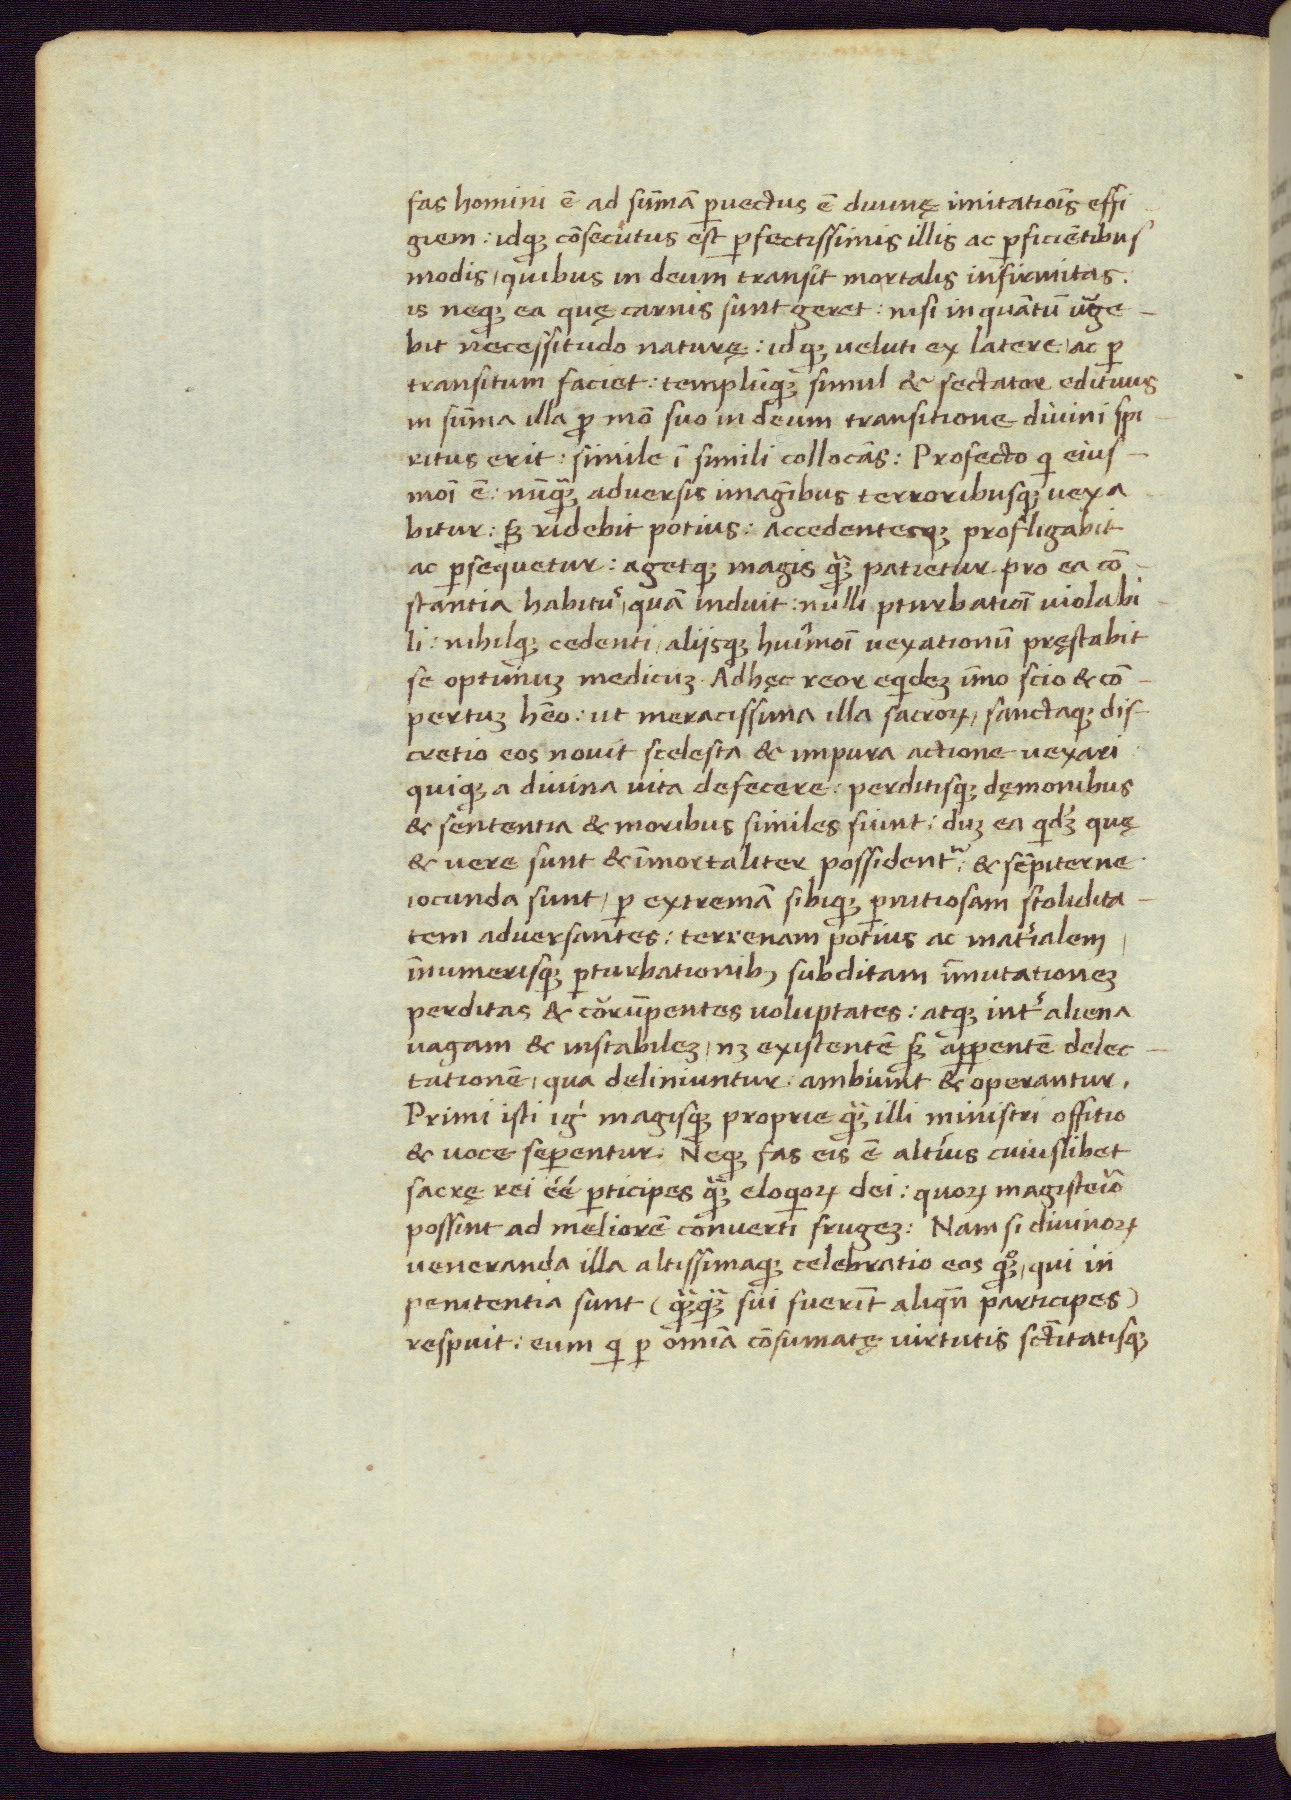 fas homini ē ad sūmā ꝑuectus ē diuinę imitatiōis effi
giem: idqꝫ cōsecutus est ꝑfectissimis illis ac ꝑficiētibus
modis, quibus in deum transit mortalis infirmitas.
is neqꝫ ea quę carnis sunt geret: nisi inquātū urge-
bit necessitudo naturę: idqꝫ ueluti ex latere, ac ꝑ
transitum faciet: templūqꝫ simul & sectator edituus
in sūma illa ꝓ mō suo in deum transitione diuini spi
ritus erit: simile ī simili collocās: Profecto qi eius-
moī ē: nūqꝫ aduersis imagībus terroribusqꝫ uexa
bitur: sꝫ ridebit potius: Accedentesqꝫ profligabit
ac ꝑsequetur: agetqꝫ magis qꝫ patietur pro ea cō-
stantia habitus, quā induit: nulli ꝑturbatioī uiolabi-
li: nihilqꝫ cedenti, aliisqꝫ huiꝰmoī uexationū pręstabit
se optimuꝫ medicuꝫ. Adhęc reor eqideꝫ īmo scio & cō-
pertuꝫ hēo: ut meracissima illa sacroꝝ, sanctaqꝫ dis-
cretio eos nouit scelesta & impura actione uexari
quiqꝫ a diuina uita defecere: perditisqꝫ dęmonibus
& sententia & moribus similes fiunt: duꝫ ea qidꝫ quę
& uere sunt & īmortaliter possidentur, & sēpiterne
iocunda sunt, ꝑ extremā sibiqꝫ ꝑnitiosam stolidita-
tem aduersantes: terrenam potius ac materialem,
īnumerisqꝫ ꝑturbationibꝰ subditam īmutationeꝫ
perditas & corrūpentes uoluptates: atqꝫ inter aliena
uagam & instabileꝫ, nꝫ existentē sꝫ apparentē delec-
tationē, qua deliniuntur, ambiunt & operantur.
Primi isti igr magisqꝫ proprie qꝫ illi ministri offitio
& uoce seꝑentur. Neqꝫ fas eis ē alterius cuiuslibet
sacrę rei éé ꝑticipes qꝫ eloqioꝝ dei: quoꝝ magisterio
possint ad meliorē conuerti frugeꝫ: Nam si diuinoꝝ
ueneranda illa altissimaqꝫ celebratio eos qꝫ, qui in
penitentia sunt (qꝫqꝫ sui fuerīt aliqn̄ participes)
respuit: eum qi ꝑ omīa cōsumatę uirtutis sctītatisqꝫ